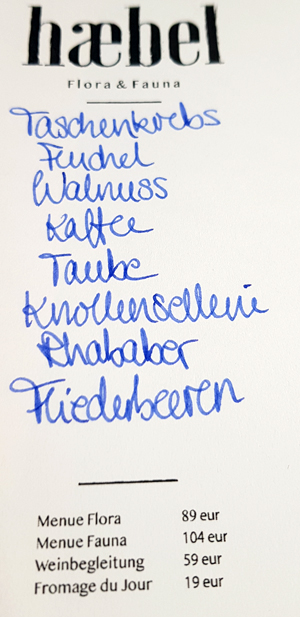 hæbel
Flora & Fauna
Taschenkrebs
Fenchel
Walnuss
Kaffee
Taube
Knollensellerie
Rhababer
Fliederbeeren
Menue Flora 89 eur
Menue Fauna 104 eur
Weinbegleitung 59 eur
Fromage du Jour 19 eur